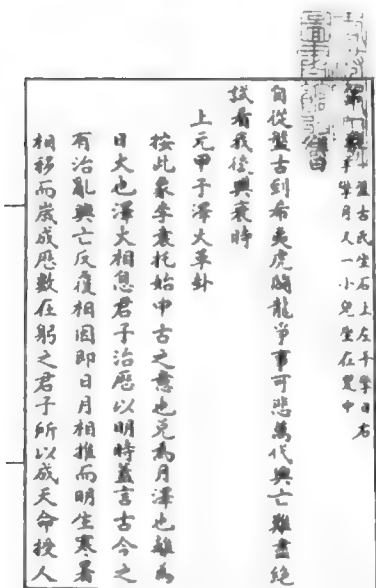 盤古氏坐石上左手擎日右
手擎月又一小兒坐在瓮中
自從盤古到希夷虎鬪龍爭事可悲萬代興亡難盡絶
試看我後興衰時
上元甲子澤火革卦
按此象李袁托始中古之意也兌為月澤也離為
日火也澤火相息君子治歷以明時蓋言古今之
有治亂興亡反復相因即日月相推而明生寒暑
相移而歲成歷數在躬之君子所以成天命授人